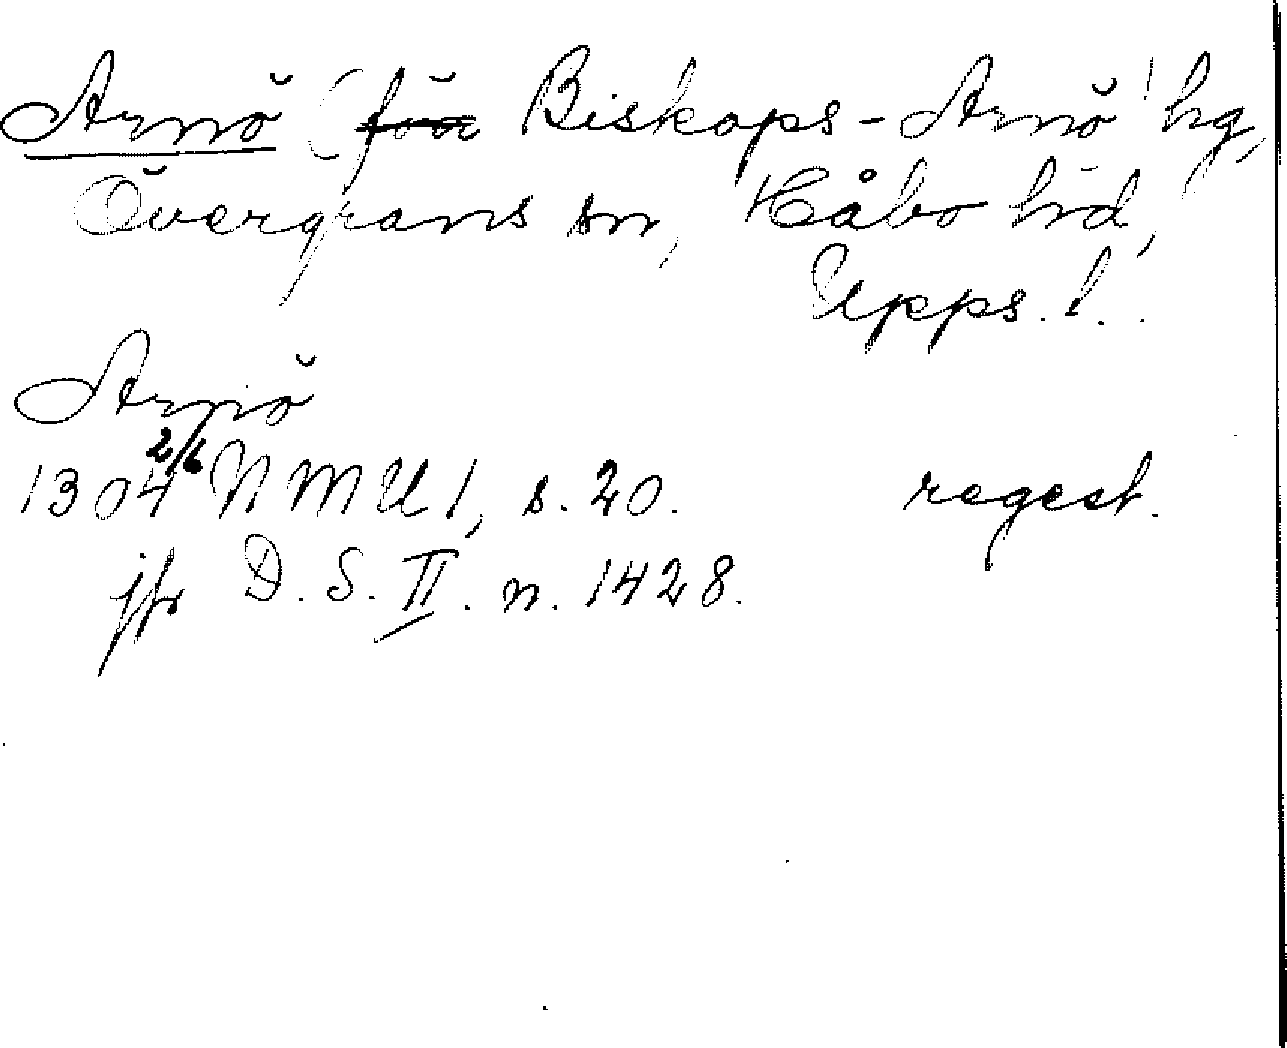 Arnö (för Biskops-Arnö) hg,
Övergrans sn, Håbo hd,
Upps. l.
Arnö
1304 2/6 NMU 1, s. 20. regest.
jfr D. S. II. n. 1428.